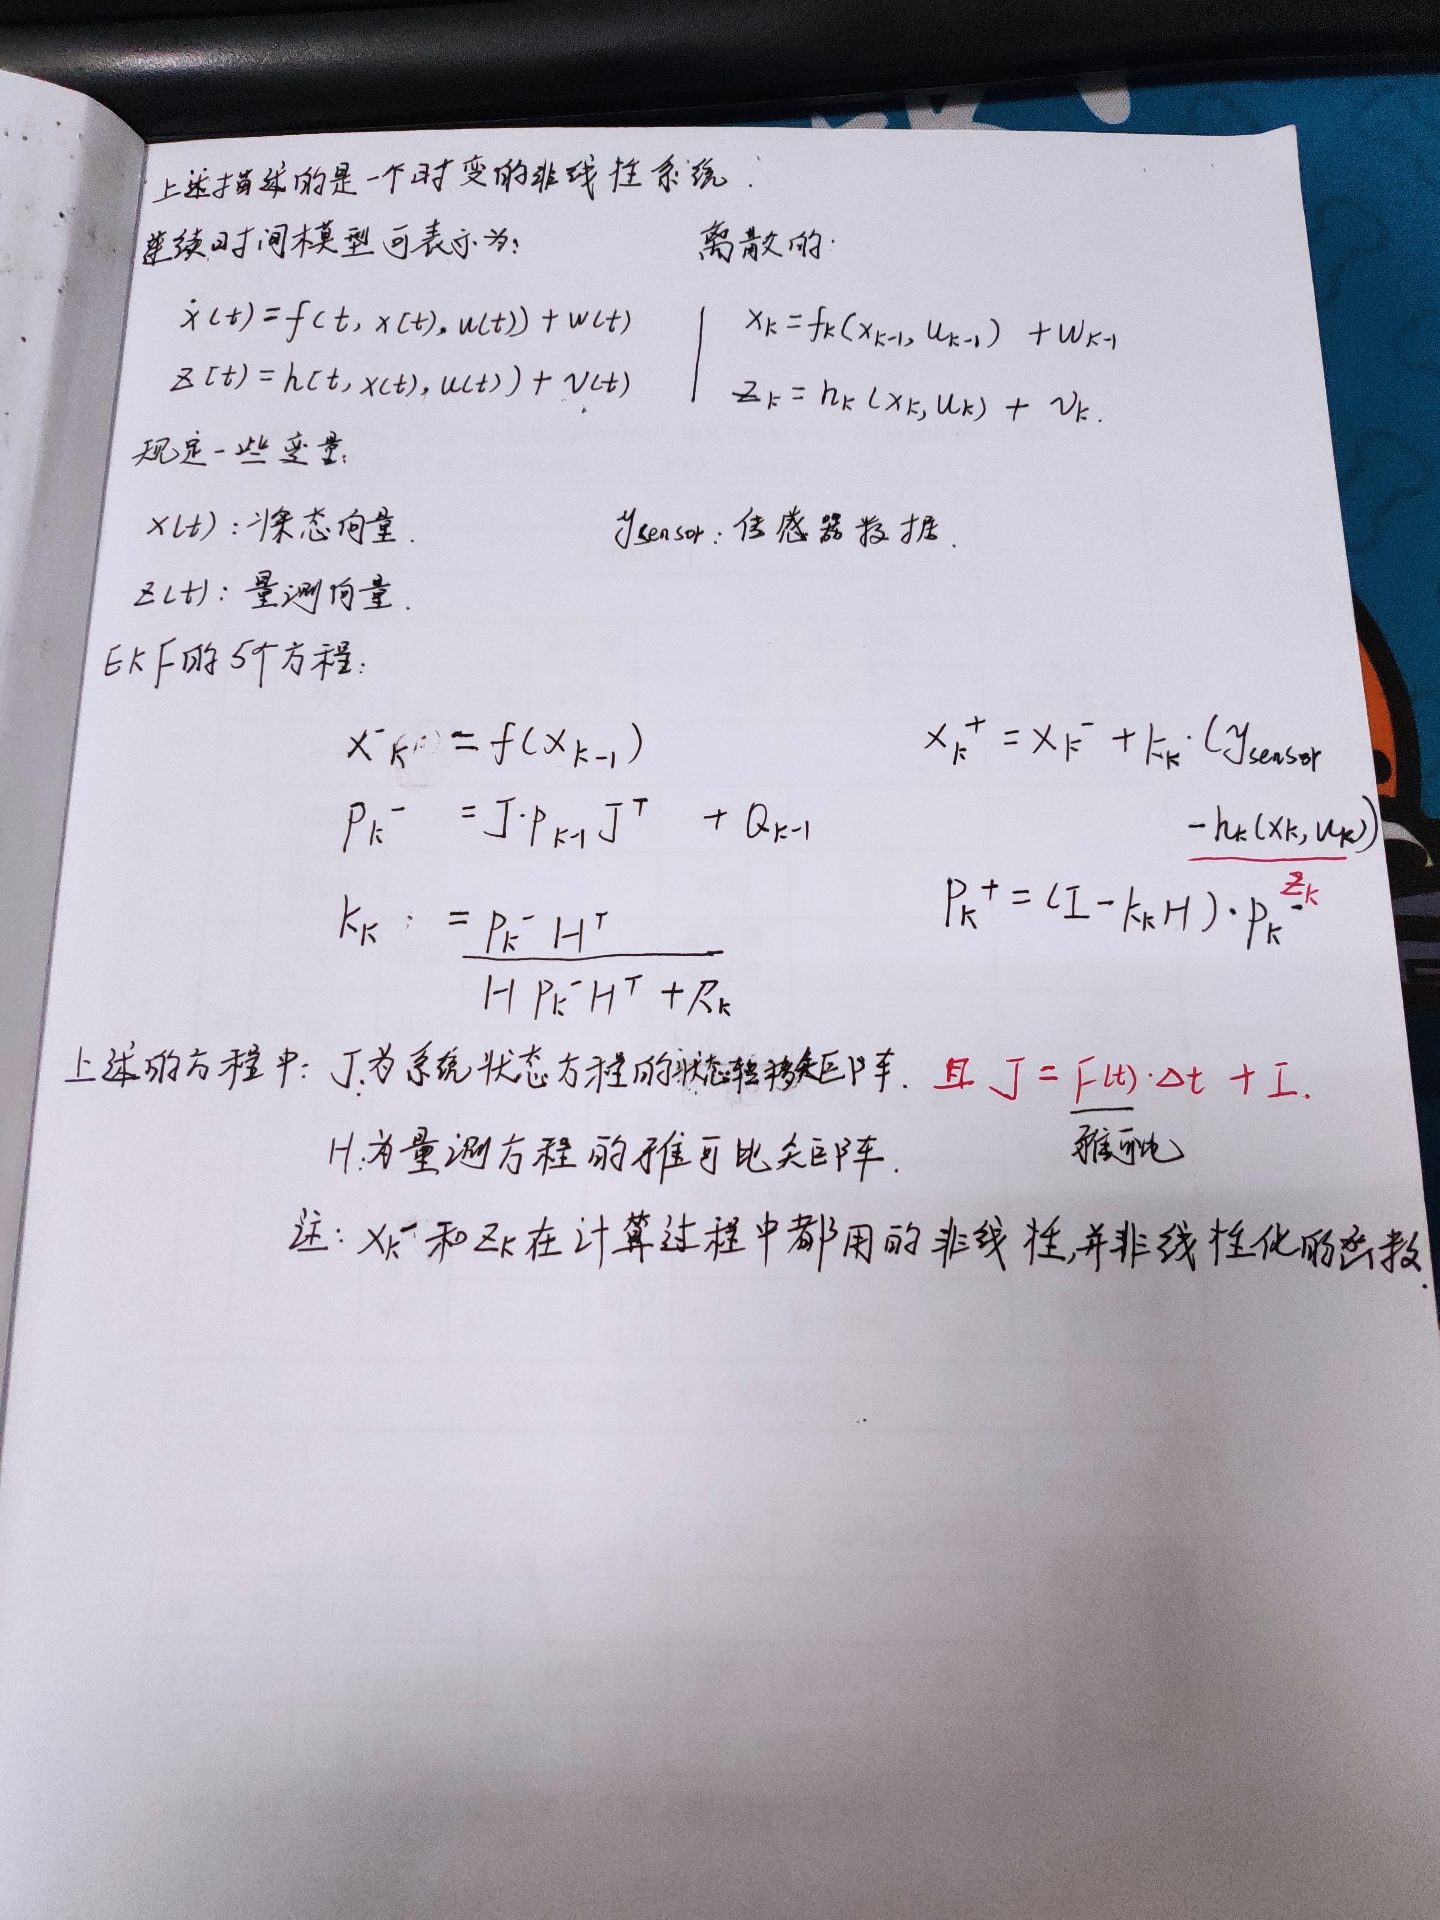 上述描述的是一个时变的非线性系统.
连续时间模型可表示为: 离散的:
ẋ(t)=f(t, x(t), u(t))+w(t) | x_k=f_k(x_{k-1}, u_{k-1}) +w_{k-1}
z(t)=h(t, x(t), u(t))+v(t) | z_k=h_k(x_k, u_k) + v_k.
规定一些变量:
x(t): 状态向量. y_sensor: 传感器数据.
z(t): 量测向量.
EKF的5个方程:
x^-_k = f(x_{k-1}) x_k^+ = x_k^- + k_k·(y_sensor
-h_k(x_k, u_k))
z_k
P_k^- = J·P_{k-1} J^T + Q_{k-1}
k_k = P_k^- H^T / (H P_k^- H^T + R_k) P_k^+ = (I-k_k H)·P_k^-
上述的方程中: J:为系统状态方程的状态转移矩阵. 且 J = F(t)·Δt + I.
雅可比
H:为量测方程的雅可比矩阵.
注: x_k^- 和 z_k 在计算过程中都用的非线性,并非线性化的函数.